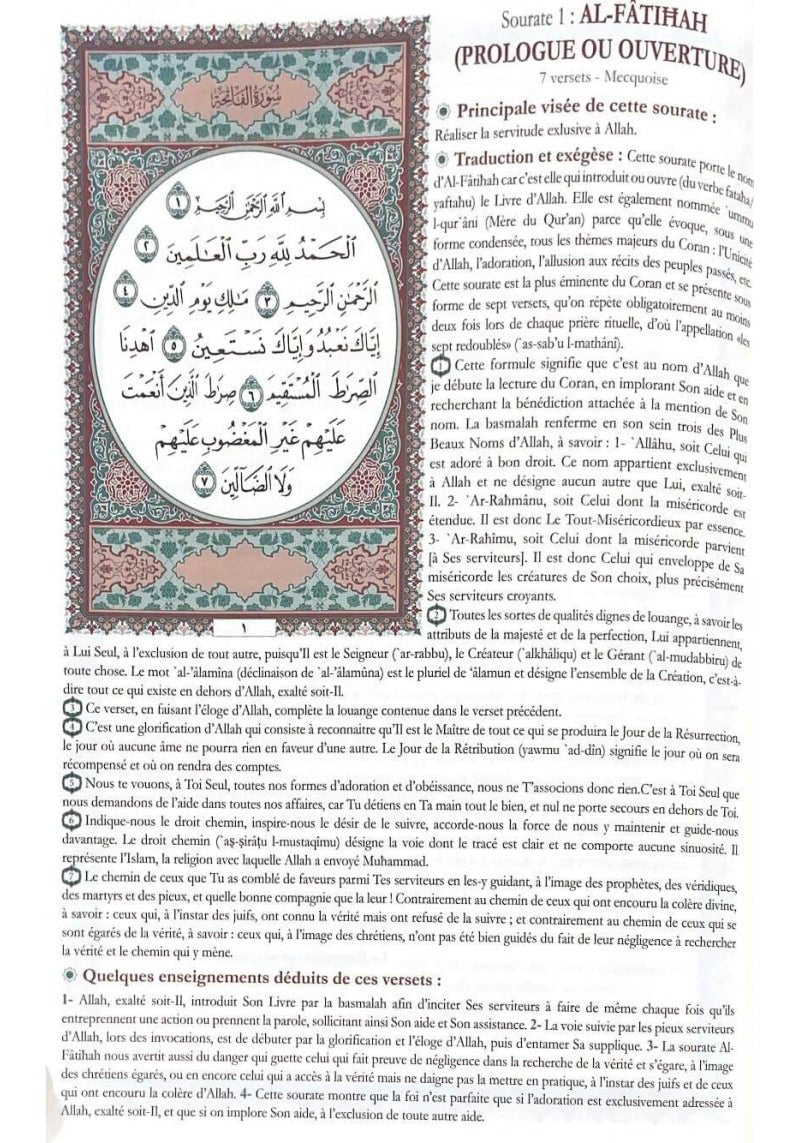 سورة الفاتحة
بِسْمِ ٱللَّهِ ٱلرَّحْمَٰنِ ٱلرَّحِيمِ ١
ٱلْحَمْدُ لِلَّهِ رَبِّ ٱلْعَٰلَمِينَ ٢
ٱلرَّحْمَٰنِ ٱلرَّحِيمِ ٣ مَٰلِكِ يَوْمِ ٱلدِّينِ ٤
إِيَّاكَ نَعْبُدُ وَإِيَّاكَ نَسْتَعِينُ ٥ ٱهْدِنَا
ٱلصِّرَٰطَ ٱلْمُسْتَقِيمَ ٦ صِرَٰطَ ٱلَّذِينَ أَنْعَمْتَ
عَلَيْهِمْ غَيْرِ ٱلْمَغْضُوبِ عَلَيْهِمْ
وَلَا ٱلضَّآلِّينَ ٧
١
Sourate 1 : AL-FÂTIĦAH
(PROLOGUE OU OUVERTURE)
7 versets - Mecquoise
Principale visée de cette sourate :
Réaliser la servitude exlusive à Allah.
Traduction et exégèse : Cette sourate porte le nom
d'Al-Fâtihah car c'est elle qui introduit ou ouvre (du verbe fataha/
yaftahu) le Livre d'Allah. Elle est également nommée `ummu
l-qur`âni (Mère du Qur'an) parce qu'elle évoque, sous une
forme condensée, tous les thèmes majeurs du Coran : l'Unicité
d'Allah, l'adoration, l'allusion aux récits des peuples passés, etc.
Cette sourate est la plus éminente du Coran et se présente sous
forme de sept versets, qu'on répète obligatoirement au moins
deux fois lors de chaque prière rituelle, d'où l'appellation «les
sept redoublés» (`as-sab'u l-mathânî).
1 Cette formule signifie que c'est au nom d'Allah que
je débute la lecture du Coran, en implorant Son aide et en
recherchant la bénédiction attachée à la mention de Son
nom. La basmalah renferme en son sein trois des Plus
Beaux Noms d'Allah, à savoir : 1- `Allâhu, soit Celui qui
est adoré à bon droit. Ce nom appartient exclusivement
à Allah et ne désigne aucun autre que Lui, exalté soit-
Il. 2- `Ar-Rahmânu, soit Celui dont la miséricorde est
étendue. Il est donc Le Tout-Miséricordieux par essence.
3- `Ar-Rahîmu, soit Celui dont la miséricorde parvient
[à Ses serviteurs]. Il est donc Celui qui enveloppe de Sa
miséricorde les créatures de Son choix, plus précisément
Ses serviteurs croyants.
2 Toutes les sortes de qualités dignes de louange, à savoir les
attributs de la majesté et de la perfection, Lui appartiennent,
à Lui Seul, à l'exclusion de tout autre, puisqu'Il est le Seigneur (`ar-rabbu), le Créateur (`alkhâliqu) et le Gérant (`al-mudabbiru) de
toute chose. Le mot `al-'âlamîna (déclinaison de `al-'âlamûna) est le pluriel de 'âlamun et désigne l'ensemble de la Création, c'est-à-
dire tout ce qui existe en dehors d'Allah, exalté soit-Il.
3 Ce verset, en faisant l'éloge d'Allah, complète la louange contenue dans le verset précédent.
4 C'est une glorification d'Allah qui consiste à reconnaitre qu'Il est le Maître de tout ce qui se produira le Jour de la Résurrection,
le jour où aucune âme ne pourra rien en faveur d'une autre. Le Jour de la Rétribution (yawmu `ad-dîn) signifie le jour où on sera
récompensé et où on rendra des comptes.
5 Nous te vouons, à Toi Seul, toutes nos formes d'adoration et d'obéissance, nous ne T'associons donc rien.C'est à Toi Seul que
nous demandons de l'aide dans toutes nos affaires, car Tu détiens en Ta main tout le bien, et nul ne porte secours en dehors de Toi.
6 Indique-nous le droit chemin, inspire-nous le désir de le suivre, accorde-nous la force de nous y maintenir et guide-nous
davantage. Le droit chemin (`aṣ-ṣirâṭu l-mustaqîmu) désigne la voie dont le tracé est clair et ne comporte aucune sinuosité. Il
représente l'Islam, la religion avec laquelle Allah a envoyé Muhammad.
7 Le chemin de ceux que Tu as comblé de faveurs parmi Tes serviteurs en les-y guidant, à l'image des prophètes, des véridiques,
des martyrs et des pieux, et quelle bonne compagnie que la leur ! Contrairement au chemin de ceux qui ont encouru la colère divine,
à savoir : ceux qui, à l'instar des juifs, ont connu la vérité mais ont refusé de la suivre ; et contrairement au chemin de ceux qui se
sont égarés de la vérité, à savoir : ceux qui, à l'image des chrétiens, n'ont pas été bien guidés du fait de leur négligence à rechercher
la vérité et le chemin qui y mène.
Quelques enseignements déduits de ces versets :
1- Allah, exalté soit-Il, introduit Son Livre par la basmalah afin d'inciter Ses serviteurs à faire de même chaque fois qu'ils
entreprennent une action ou prennent la parole, sollicitant ainsi Son aide et Son assistance. 2- La voie suivie par les pieux serviteurs
d'Allah, lors des invocations, est de débuter par la glorification et l'éloge d'Allah, puis d'entamer Sa supplique. 3- La sourate Al-
Fâtihah nous avertit aussi du danger qui guette celui qui fait preuve de négligence dans la recherche de la vérité et s'égare, à l'image
des chrétiens égarés, ou en encore celui qui a accès à la vérité mais ne daigne pas la mettre en pratique, à l'instar des juifs et de ceux
qui ont encouru la colère d'Allah. 4- Cette sourate montre que la foi n'est parfaite que si l'adoration est exclusivement adressée à
Allah, exalté soit-Il, et que si on implore Son aide, à l'exclusion de toute autre aide.